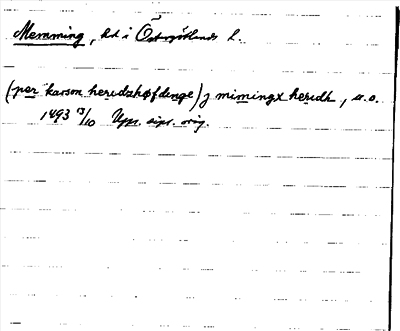 Memming, hd i Östergötlands l.
(per karson heredzhøfdenge) j mimingx heredh, u.o.
1493 13/10 Upps. dipl. orig.